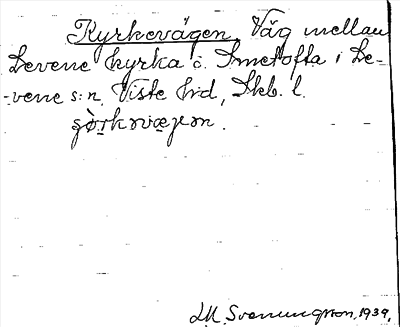 Kyrkevägen. Väg mellan
Levene kyrka o. Smetofta i Le-
-vene s:n. Viste hrd, Skb. l.
M. Svenungsson, 1939.